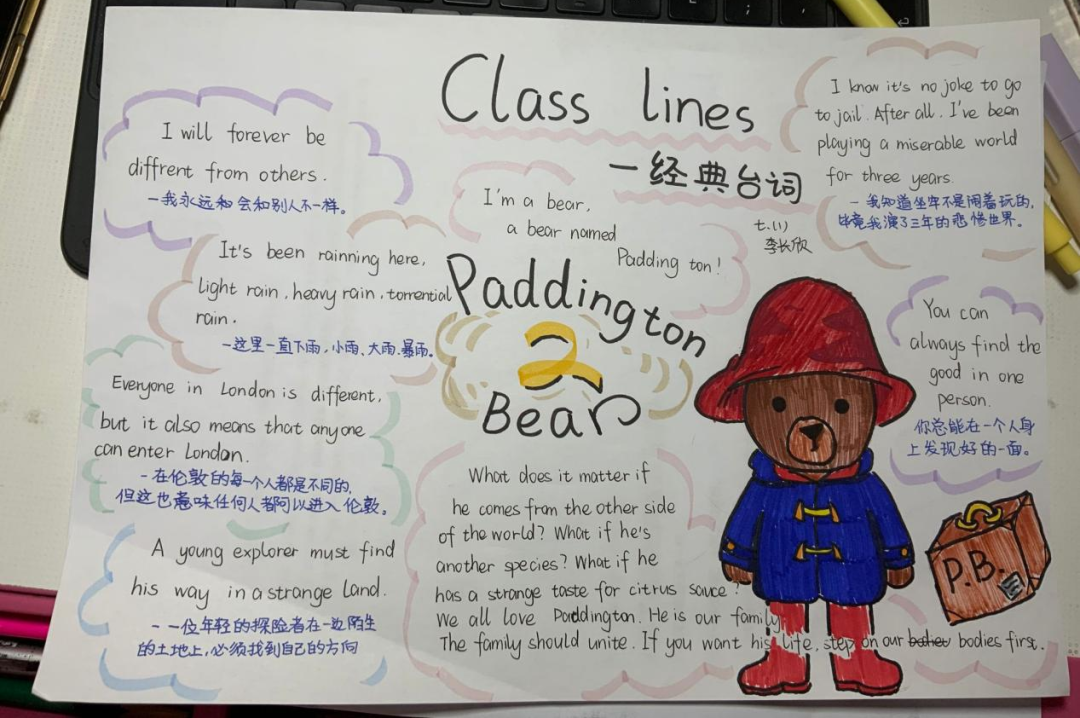 Class lines
一经典台词
七.(1)
李长欣
I will forever be
diffrent from others.
－我永远和会和别人不一样。
I'm a bear,
a bear named
Padding ton!
I know it's no joke to go
to jail. After all, I've been
playing a miserable world
for three years.
－我知道坐牢不是闹着玩的,
毕竟我演了三年的悲惨世界。
It's been rainning here,
light rain, heavy rain, torrential
rain.
－这里一直下雨, 小雨、大雨、暴雨。
Paddington
2
Bear
You can
always find the
good in one
person.
你总能在一个人身
上发现好的一面。
Everyone in London is different,
but it also means that anyone
can enter London.
－在伦敦的每一个人都是不同的,
但这也意味任何人都可以进入伦敦。
What does it matter if
he comes from the other side
of the world? What if he's
another species? What if he
has a strange taste for citrus sauce?
We all love Paddington. He is our family.
The family should unite. If you want his life, step on our bodies first.
A young explorer must find
his way in a strange land.
－一位年轻的探险者在一边陌生
的土地上,必须找到自己的方向
P.B.